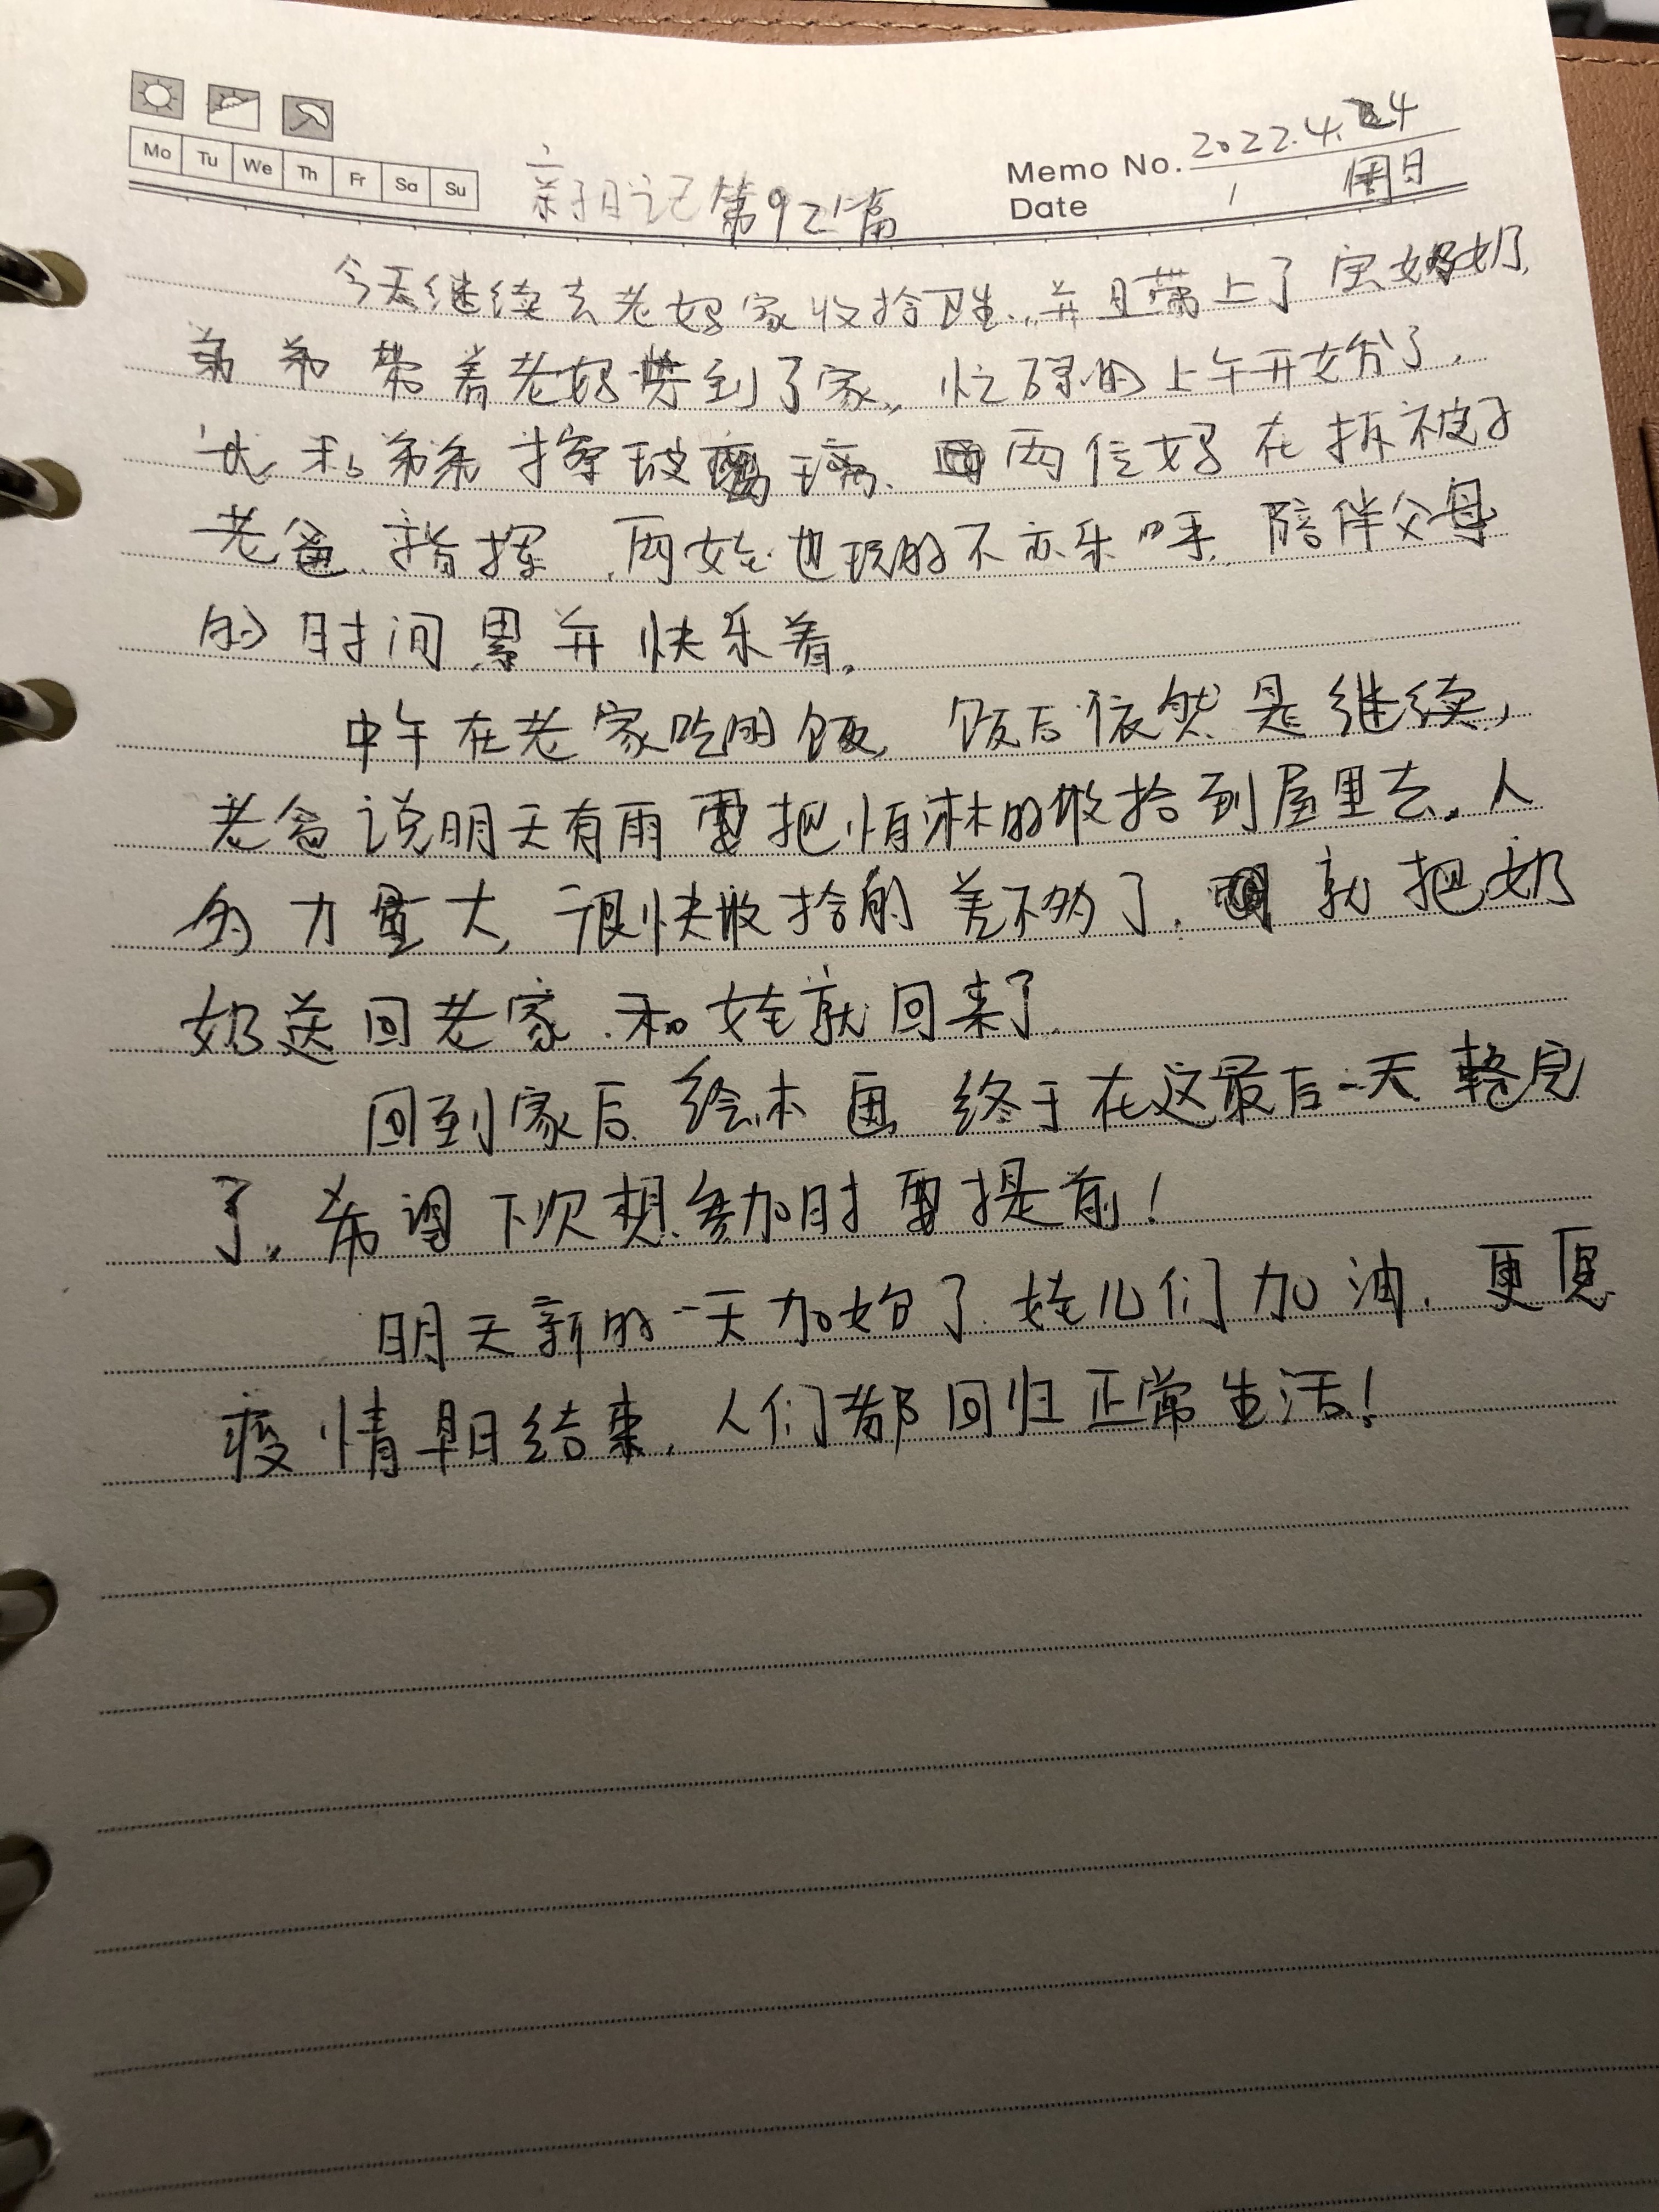 Mo Tu We Th Fr Sa Su
Memo No. 2022.4.24
Date / 周日
亲子日记第921篇
今天继续去老妈家收拾卫生,并且带上了宝奶奶,
弟弟带着老妈也到了家,忙碌的上午开始了,
我和弟弟擦玻璃、两位妈在拆被子
老爸指挥,两娃也玩的不亦乐乎,陪伴父母
的时间累并快乐着。
中午在老家吃的饭,饭后依然是继续,
老爸说明天有雨要把怕淋的收拾到屋里去,人
多力量大,很快收拾的差不多了,就把奶
奶送回老家,和娃就回来了
回到家后绘本画终于在这最后一天整完
了,希望下次想参加时要提前!
明天新的一天加始了,娃儿们加油,更愿
疫情早日结束,人们都回归正常生活!